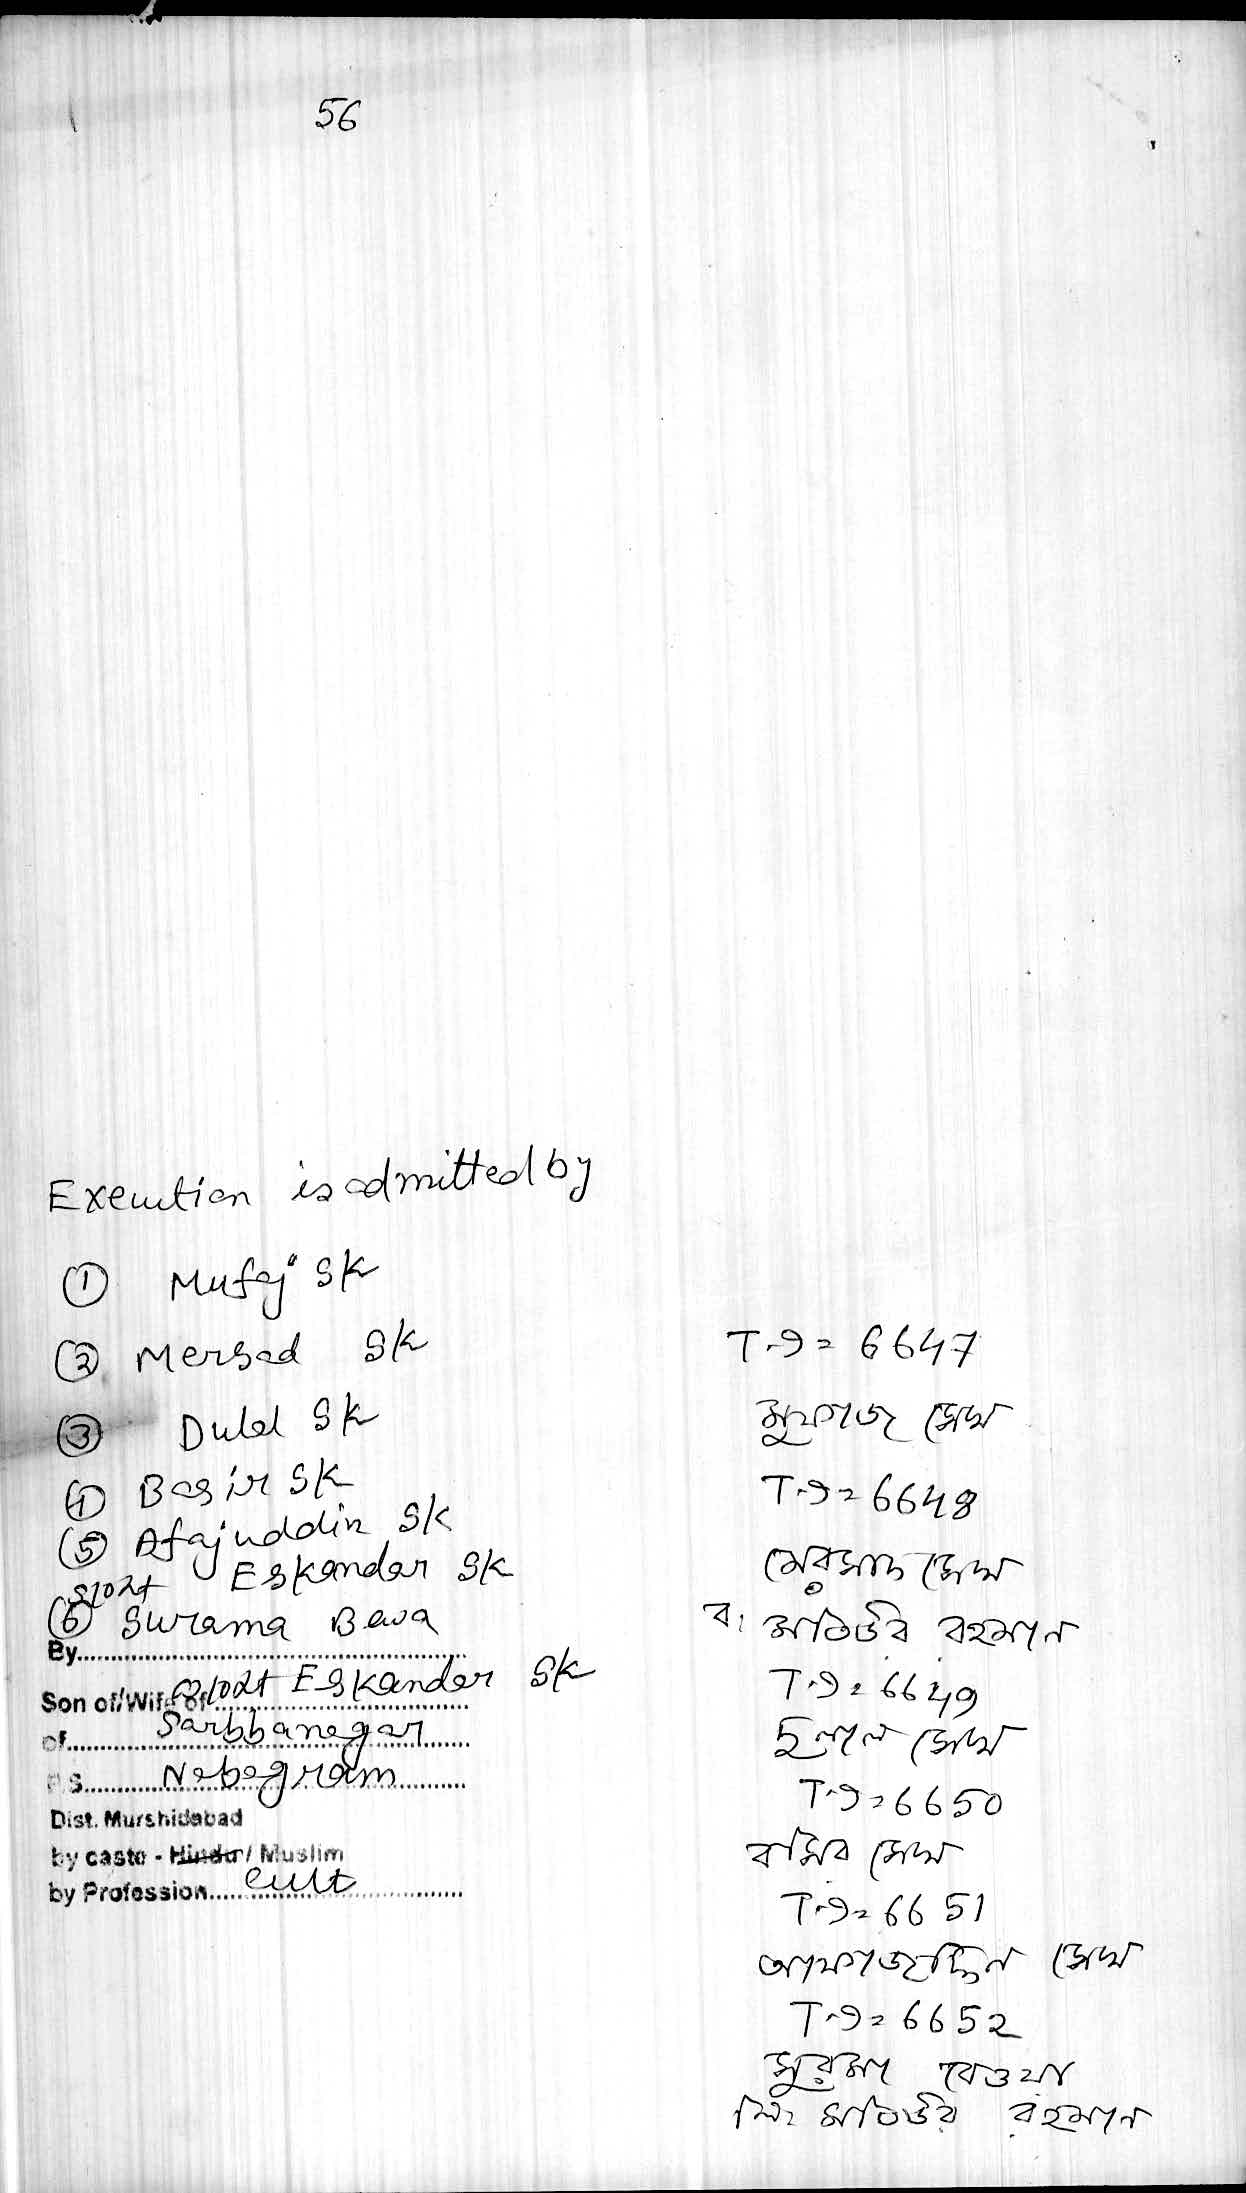 56
Execution is admitted by
① Mufaj Sk
② Mersad Sk
③ Dulal Sk
④ Basir Sk
⑤ Afajuddin Sk
Eskandar Sk
⑥ Surama Bewa
By
Son of/Wife of Eskandar Sk
of Sarbbanagar
P.S. Nabagram
Dist. Murshidabad
by caste - Hindu / Muslim
by Profession cult
T.I = 6647
মুফাজ সেখ
T.I = 6648
মেরসাদ সেখ
ব: মতিউর রহমান
T.I = 6649
দুলাল সেখ
T.I = 6650
বসির সেখ
T.I = 6651
আফাজুদ্দিন সেখ
T.I = 6652
সুরমা বেওয়া
মতিউর রহমান